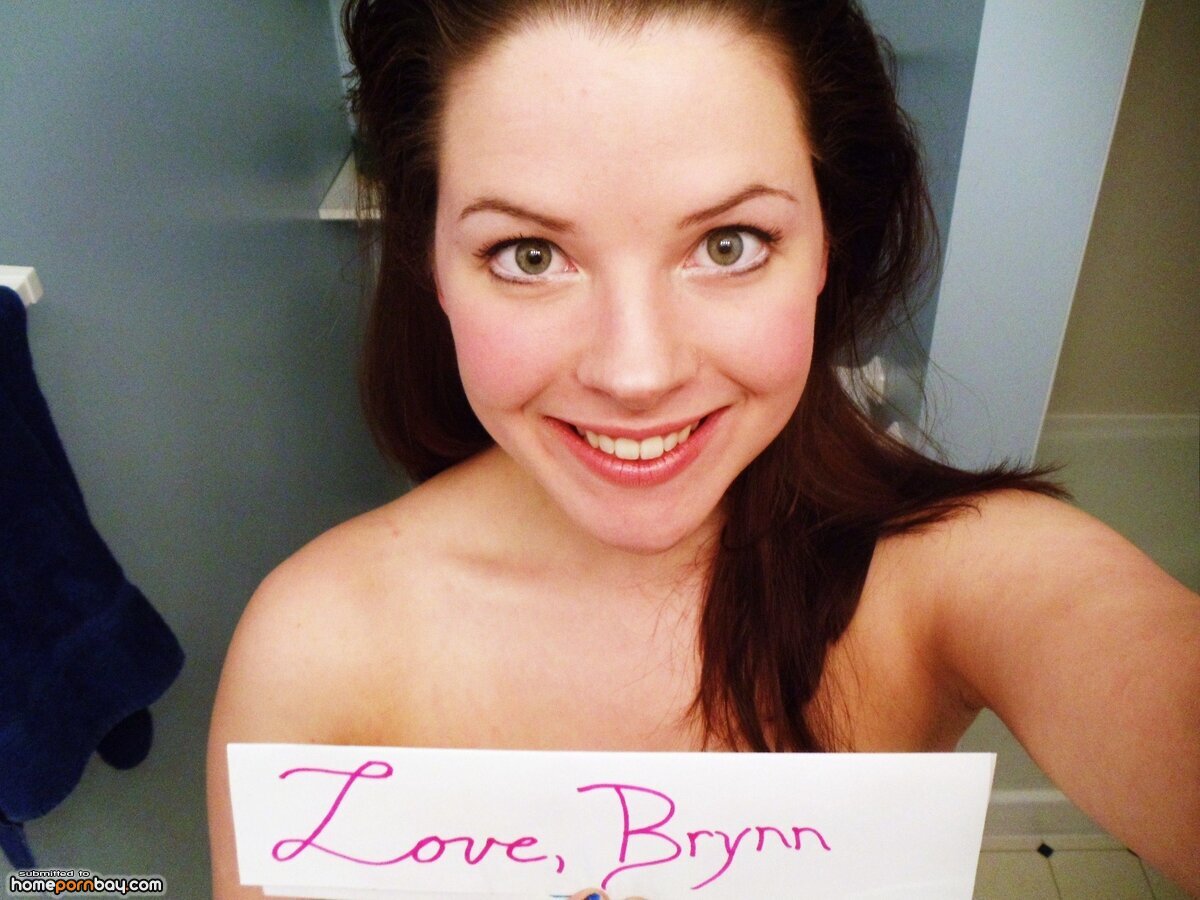 Love, Brynn
submitted to
homepornbay.com